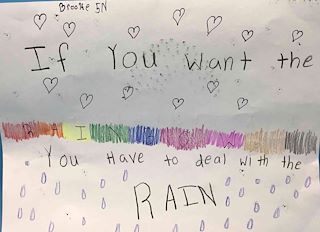 Brooke 5N
If You Want the
RAINBOW
You Have to deal with the
RAIN